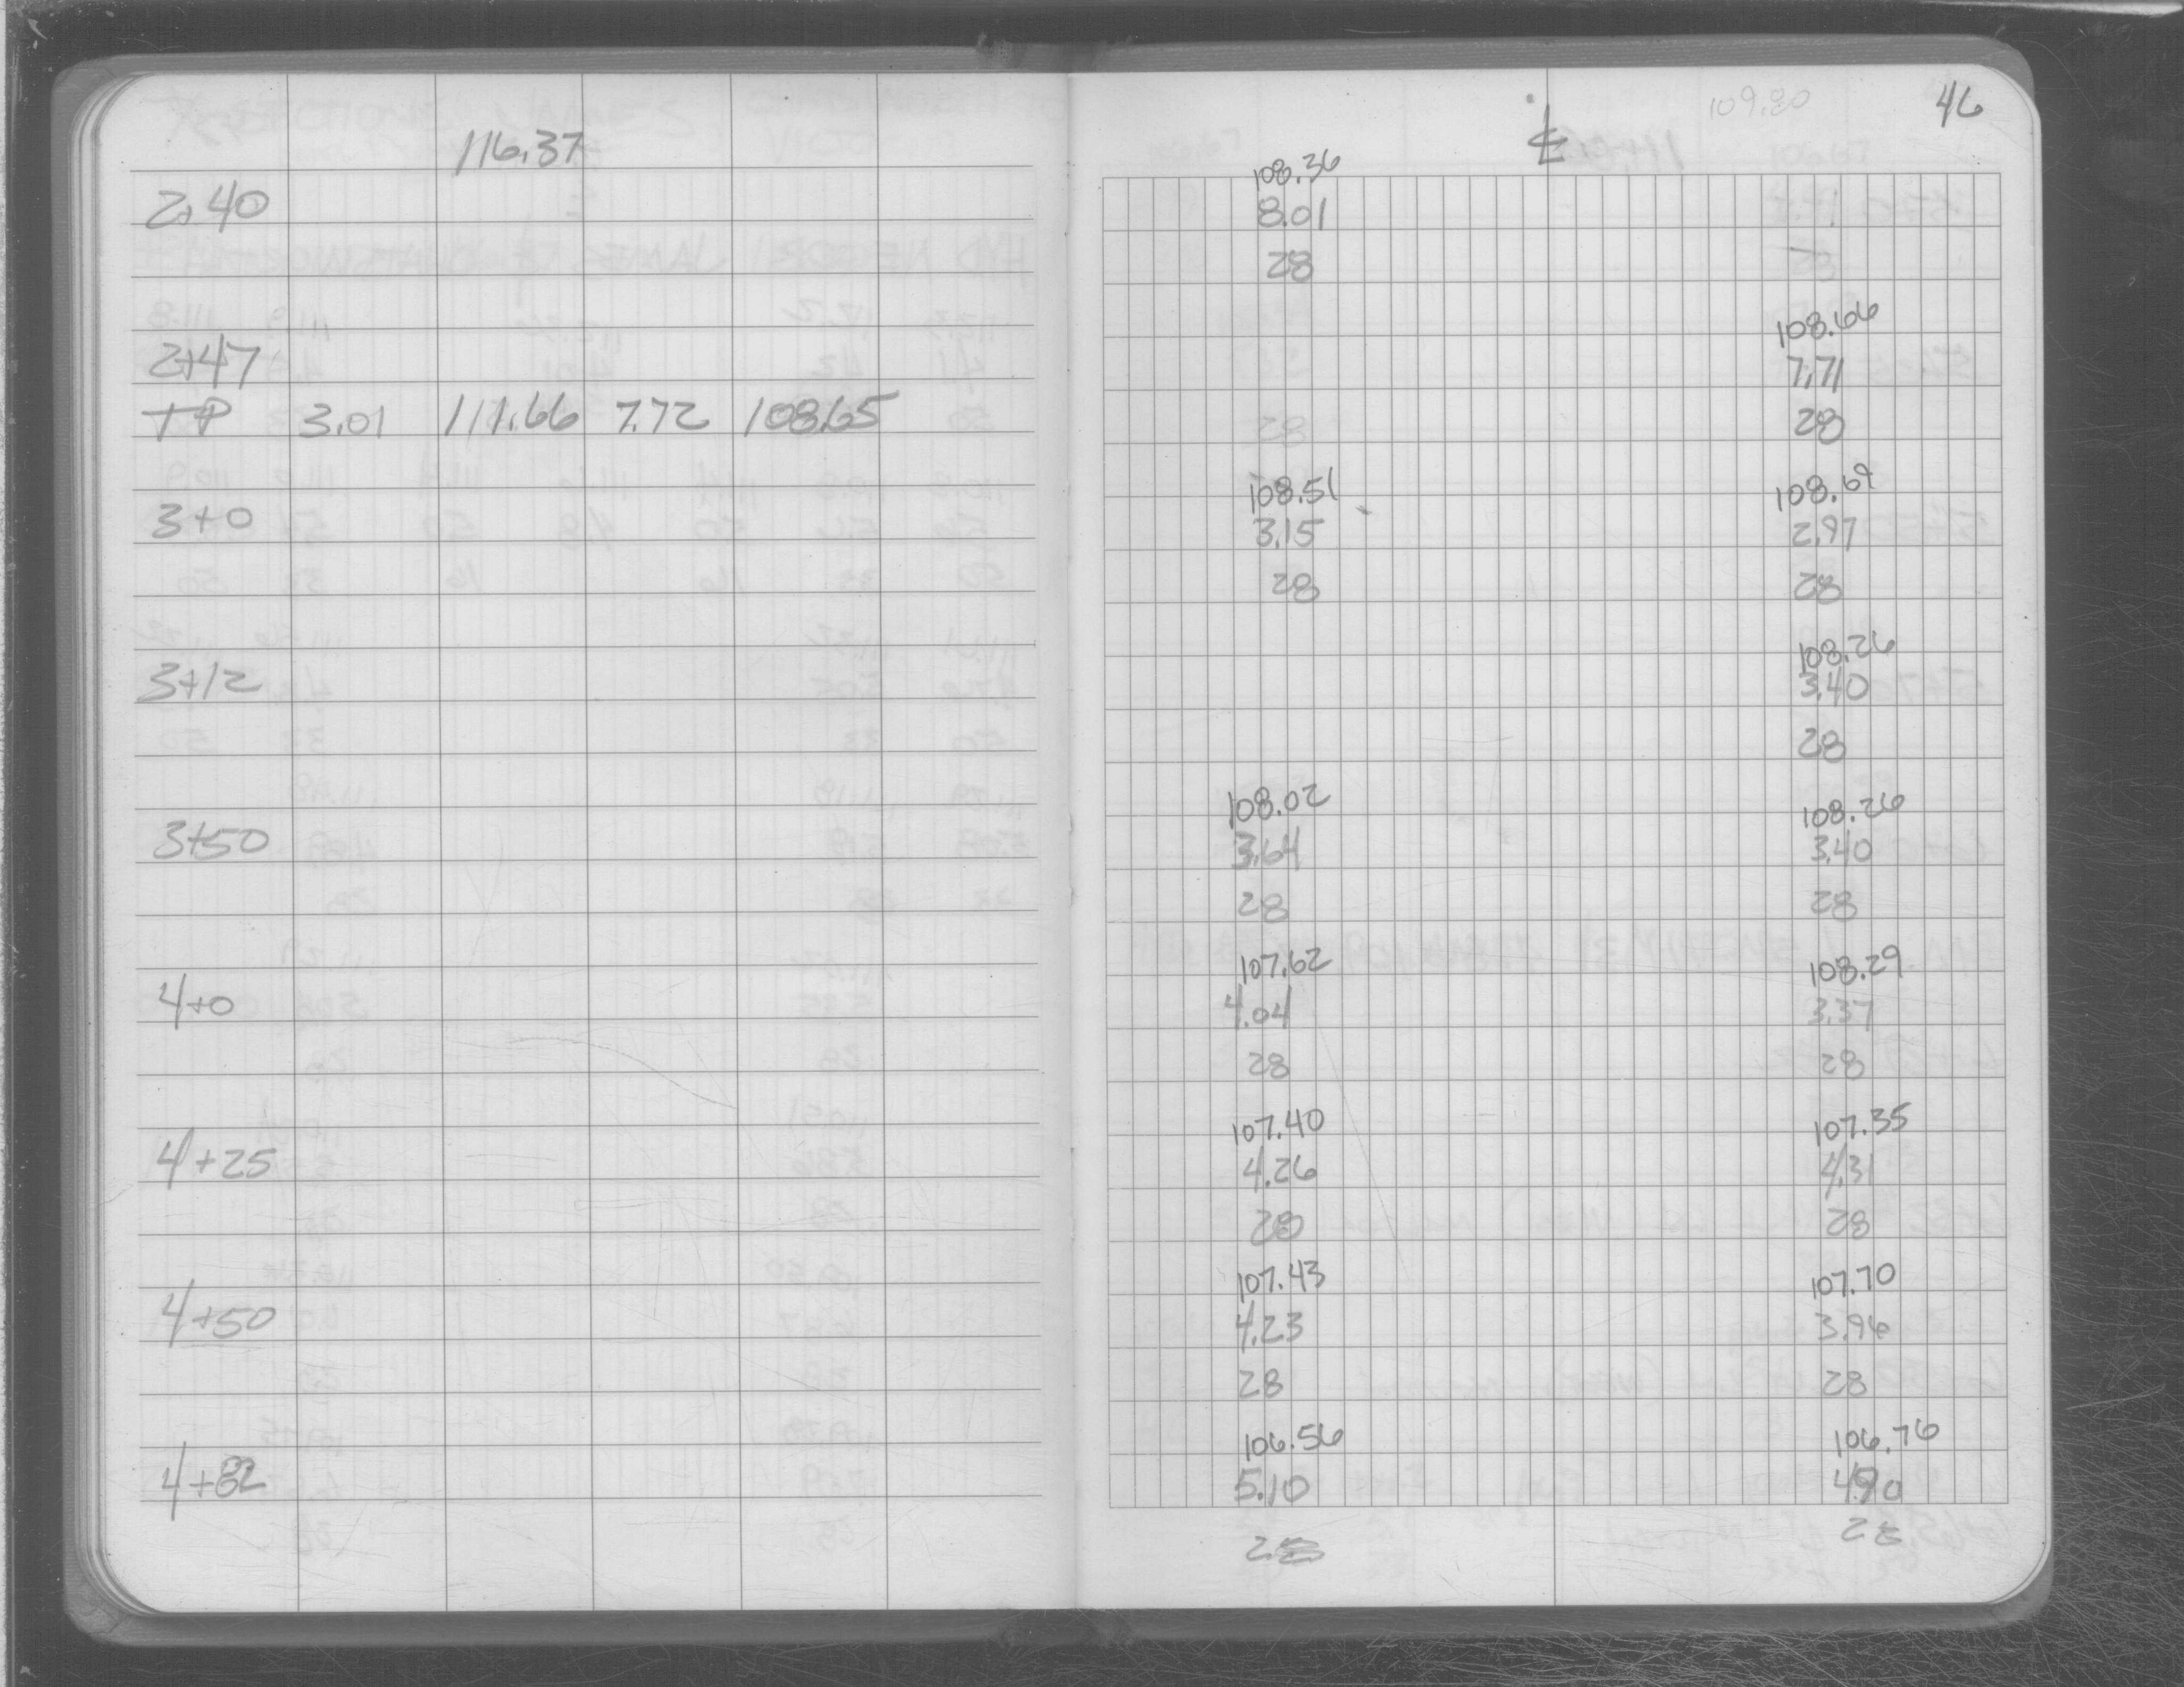 116.37
2+40
2+47
TP 3.01 111.66 7.72 108.65
3+0
3+12
3+50
4+0
4+25
4+50
4+82
℄ 109.80 46
108.36
8.01
28
108.66
7.71
28
108.51 108.69
3.15 2.97
28 28
108.26
3.40
28
108.02 108.26
3.64 3.40
28 28
107.62 108.29
4.04 3.37
28 28
107.40 107.35
4.26 4.31
28 28
107.43 107.70
4.23 3.96
28 28
106.56 106.76
5.10 4.90
28 28